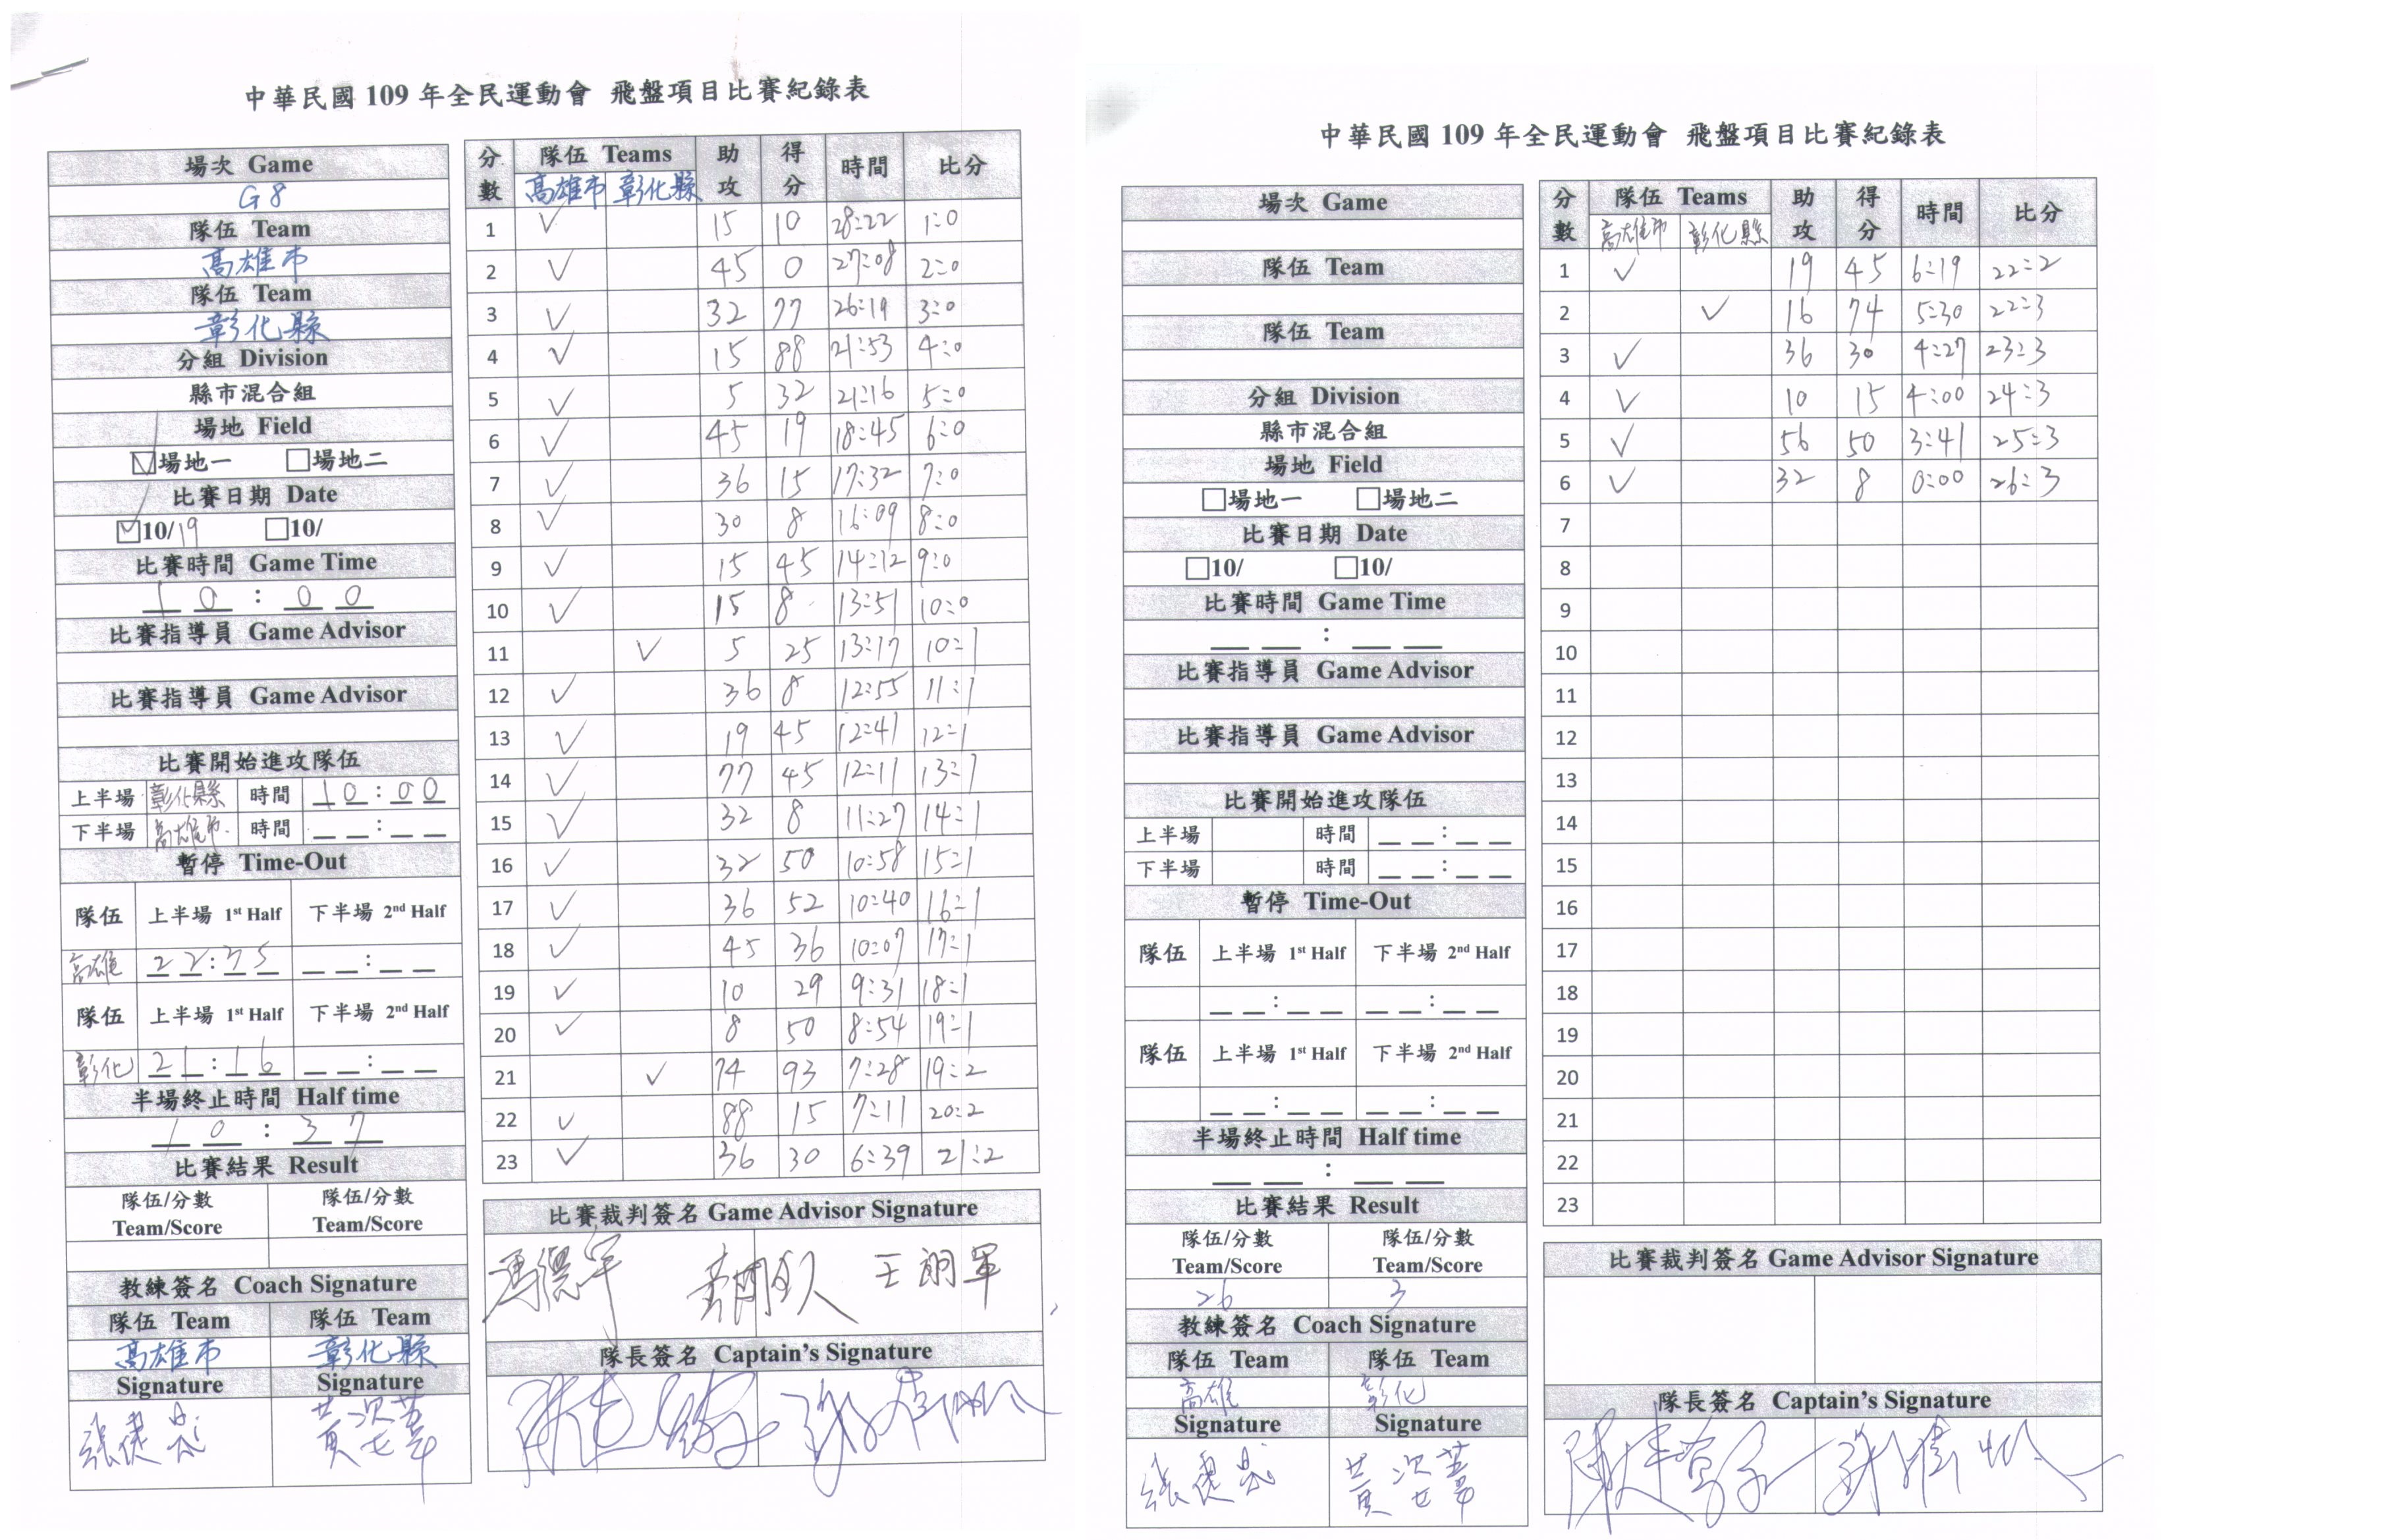 中華民國 109 年全民運動會 飛盤項目比賽紀錄表
場次 Game
G8
隊伍 Team
高雄市
隊伍 Team
彰化縣
分組 Division
縣市混合組
場地 Field
☑場地一 □場地二
比賽日期 Date
☑10/19 □10/
比賽時間 Game Time
10:00
比賽指導員 Game Advisor
比賽指導員 Game Advisor
比賽開始進攻隊伍
上半場 彰化縣 時間 10:00
下半場 高雄市 時間 __:__
暫停 Time-Out
隊伍 上半場 1st Half 下半場 2nd Half
高雄 22:35 __:__
隊伍 上半場 1st Half 下半場 2nd Half
彰化 21:16 __:__
半場終止時間 Half time
10:37
比賽結果 Result
隊伍/分數 隊伍/分數
Team/Score Team/Score
教練簽名 Coach Signature
隊伍 Team 隊伍 Team
高雄市 彰化縣
Signature Signature
分數 隊伍 Teams 助攻 得分 時間 比分
高雄市 彰化縣
1 ✓ 15 10 28:22 1:0
2 ✓ 45 0 27:08 2:0
3 ✓ 32 77 26:19 3:0
4 ✓ 15 88 21:53 4:0
5 ✓ 5 32 21:16 5:0
6 ✓ 45 19 18:45 6:0
7 ✓ 36 15 17:32 7:0
8 ✓ 30 8 16:09 8:0
9 ✓ 15 45 14:12 9:0
10 ✓ 15 8 13:51 10:0
11 ✓ 5 25 13:17 10:1
12 ✓ 36 8 12:55 11:1
13 ✓ 19 45 12:41 12:1
14 ✓ 77 45 12:11 13:1
15 ✓ 32 8 11:27 14:1
16 ✓ 32 50 10:58 15:1
17 ✓ 36 52 10:40 16:1
18 ✓ 45 36 10:07 17:1
19 ✓ 10 29 9:31 18:1
20 ✓ 8 50 8:54 19:1
21 ✓ 74 93 7:28 19:2
22 ✓ 88 15 7:11 20:2
23 ✓ 36 30 6:39 21:2
比賽裁判簽名 Game Advisor Signature
王翊軍
隊長簽名 Captain's Signature
中華民國 109 年全民運動會 飛盤項目比賽紀錄表
場次 Game
隊伍 Team
隊伍 Team
分組 Division
縣市混合組
場地 Field
□場地一 □場地二
比賽日期 Date
□10/ □10/
比賽時間 Game Time
__:__
比賽指導員 Game Advisor
比賽指導員 Game Advisor
比賽開始進攻隊伍
上半場 時間 __:__
下半場 時間 __:__
暫停 Time-Out
隊伍 上半場 1st Half 下半場 2nd Half
__:__ __:__
隊伍 上半場 1st Half 下半場 2nd Half
__:__ __:__
半場終止時間 Half time
__:__
比賽結果 Result
隊伍/分數 隊伍/分數
Team/Score Team/Score
26 3
教練簽名 Coach Signature
隊伍 Team 隊伍 Team
高雄 彰化
Signature Signature
分數 隊伍 Teams 助攻 得分 時間 比分
高雄市 彰化縣
1 ✓ 19 45 6:19 22:2
2 ✓ 16 74 5:30 22:3
3 ✓ 36 30 4:27 23:3
4 ✓ 10 15 4:00 24:3
5 ✓ 56 50 3:41 25:3
6 ✓ 32 8 0:00 26:3
7
8
9
10
11
12
13
14
15
16
17
18
19
20
21
22
23
比賽裁判簽名 Game Advisor Signature
隊長簽名 Captain's Signature